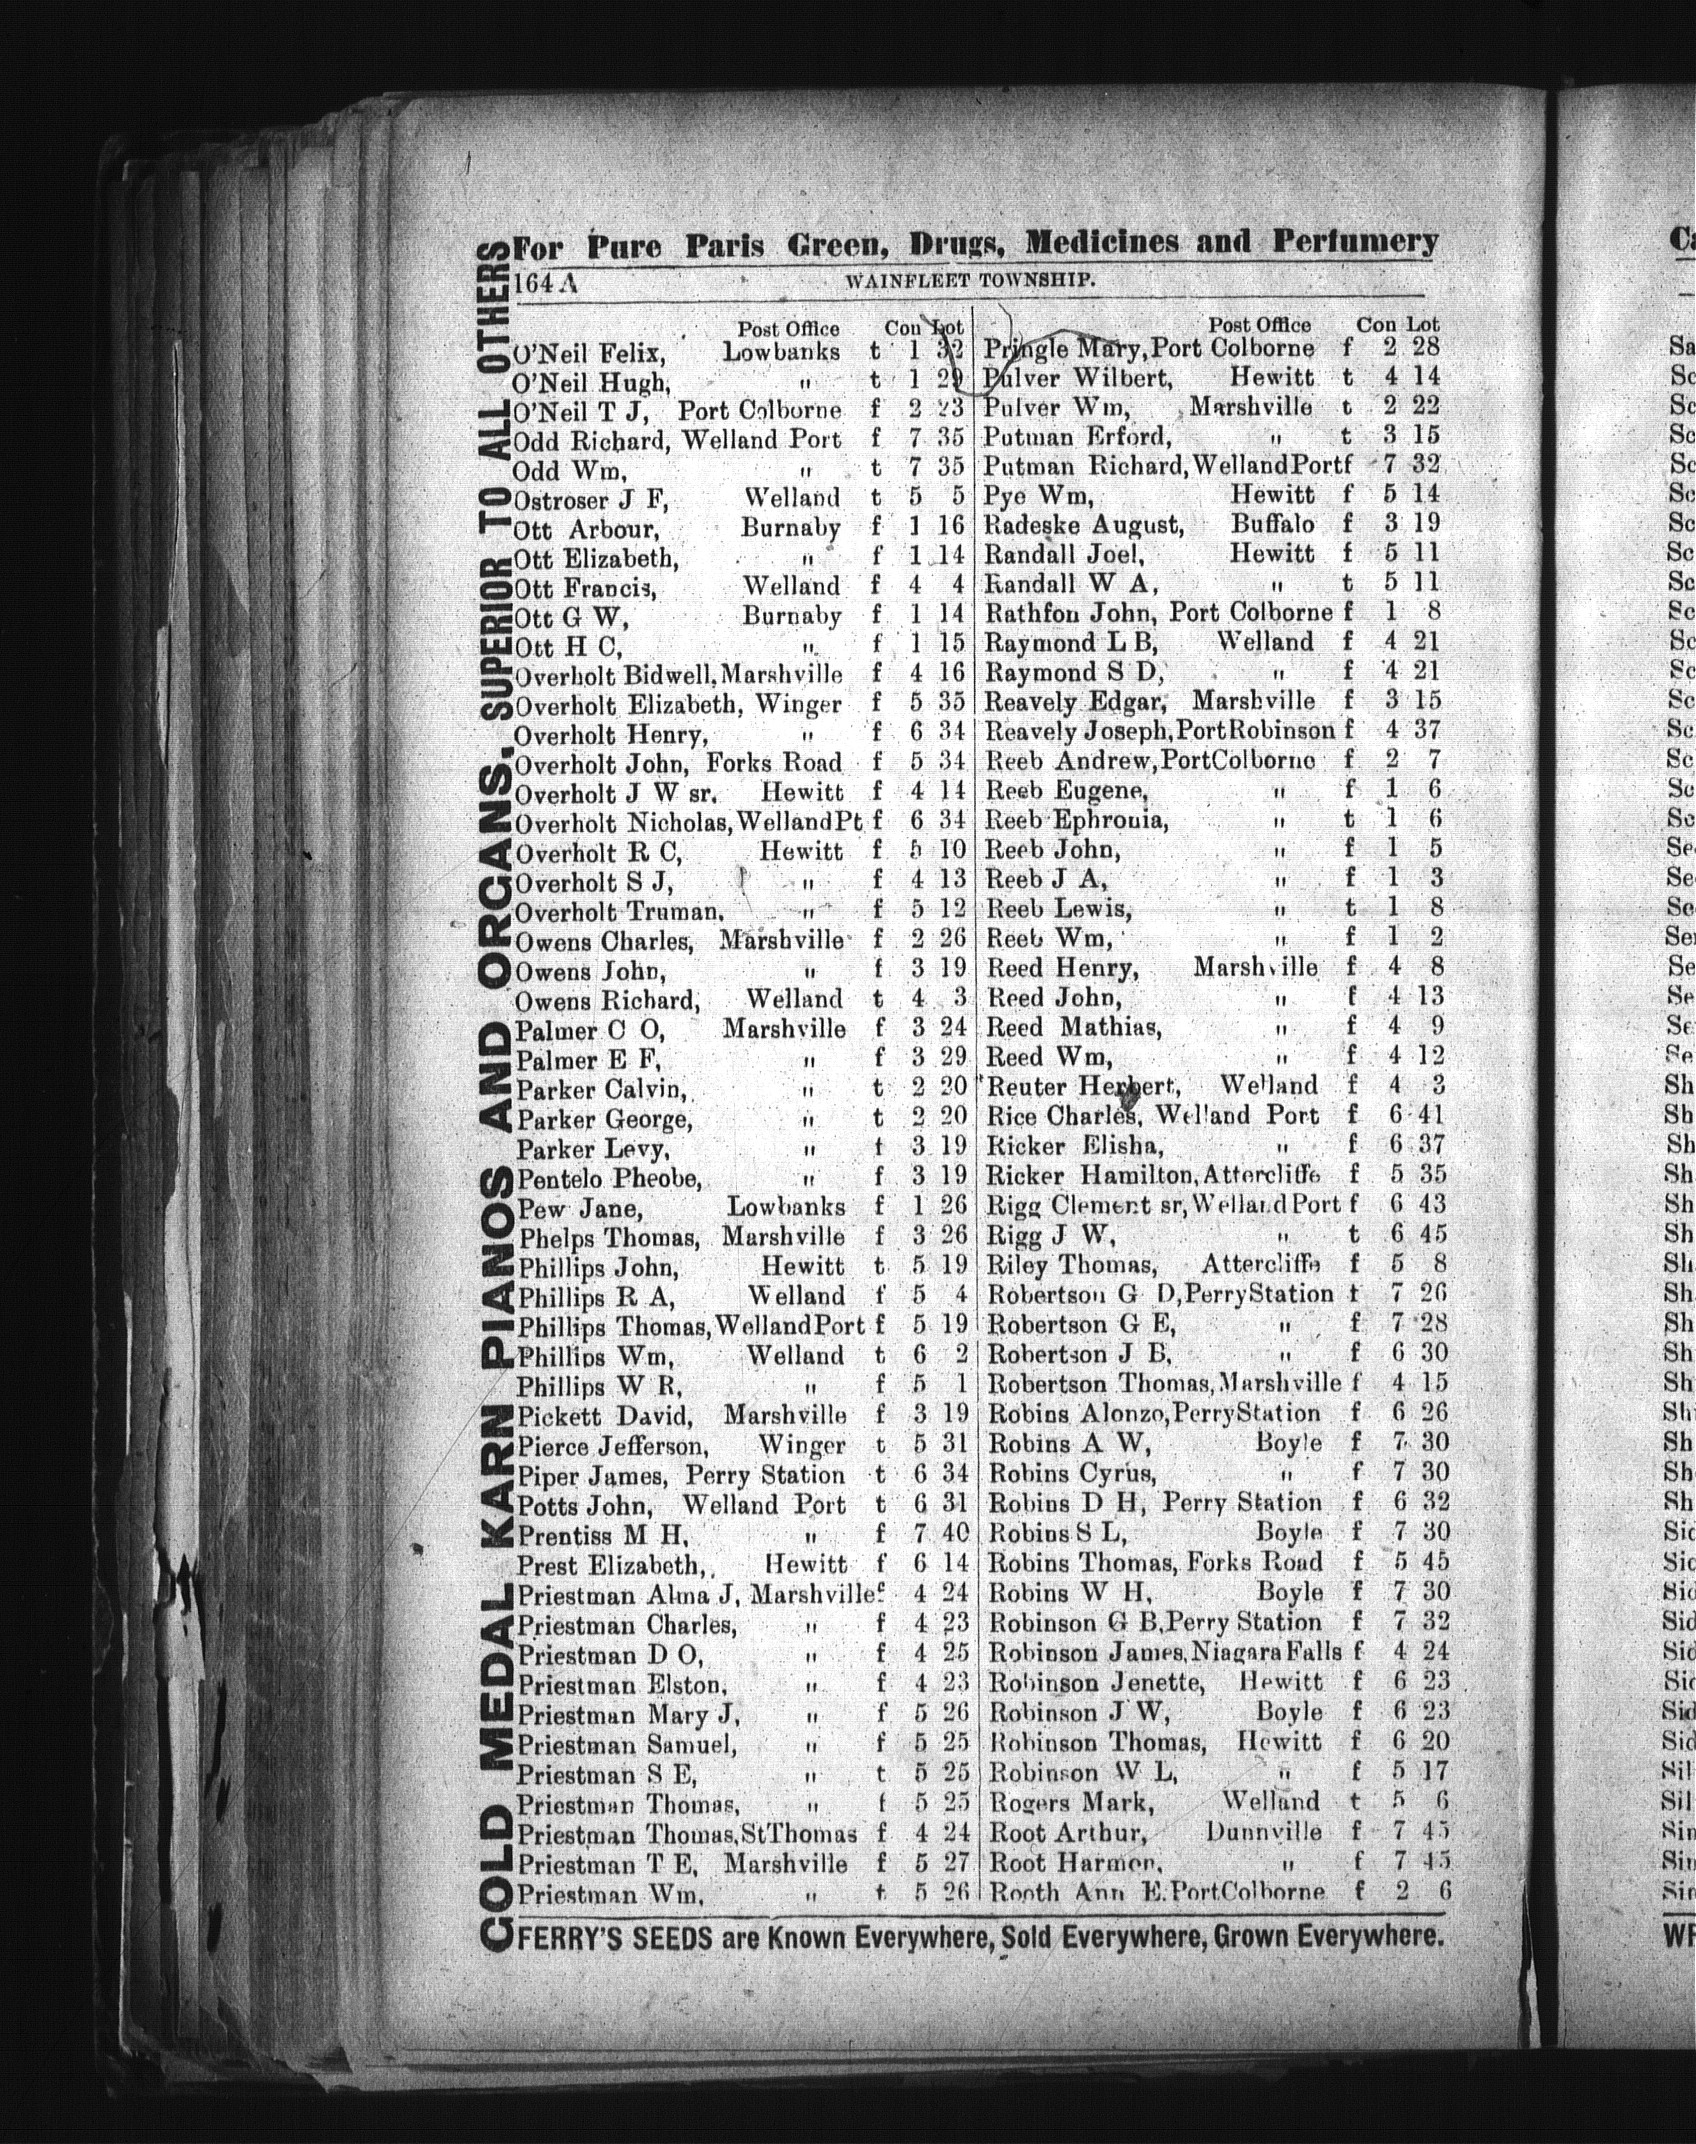 For Pure Paris Green, Drugs, Medicines and Perfumery
164 A WAINFLEET TOWNSHIP.
GOLD MEDAL KARN PIANOS AND ORGANS, SUPERIOR TO ALL OTHERS
Post Office Con Lot
O'Neil Felix, Lowbanks t 1 32
O'Neil Hugh, " t 1 29
O'Neil T J, Port Colborne f 2 23
Odd Richard, Welland Port f 7 35
Odd Wm, " t 7 35
Ostroser J F, Welland t 5 5
Ott Arbour, Burnaby f 1 16
Ott Elizabeth, " f 1 14
Ott Francis, Welland f 4 4
Ott G W, Burnaby f 1 14
Ott H C, " f 1 15
Overholt Bidwell, Marshville f 4 16
Overholt Elizabeth, Winger f 5 35
Overholt Henry, " f 6 34
Overholt John, Forks Road f 5 34
Overholt J W sr. Hewitt f 4 14
Overholt Nicholas, Welland Pt f 6 34
Overholt R C, Hewitt f 5 10
Overholt S J, " f 4 13
Overholt Truman, " f 5 12
Owens Charles, Marshville f 2 26
Owens John, " f 3 19
Owens Richard, Welland t 4 3
Palmer C O, Marshville f 3 24
Palmer E F, " f 3 29
Parker Calvin, " t 2 20
Parker George, " t 2 20
Parker Levy, " t 3 19
Pentelo Pheobe, " f 3 19
Pew Jane, Lowbanks f 1 26
Phelps Thomas, Marshville f 3 26
Phillips John, Hewitt t 5 19
Phillips R A, Welland f 5 4
Phillips Thomas, Welland Port f 5 19
Phillips Wm, Welland t 6 2
Phillips W R, " f 5 1
Pickett David, Marshville f 3 19
Pierce Jefferson, Winger t 5 31
Piper James, Perry Station t 6 34
Potts John, Welland Port t 6 31
Prentiss M H, " f 7 40
Prest Elizabeth, Hewitt f 6 14
Priestman Alma J, Marshville f 4 24
Priestman Charles, " f 4 23
Priestman D O, " f 4 25
Priestman Elston, " f 4 23
Priestman Mary J, " f 5 26
Priestman Samuel, " f 5 25
Priestman S E, " t 5 25
Priestman Thomas, " f 5 25
Priestman Thomas, St Thomas f 4 24
Priestman T E, Marshville f 5 27
Priestman Wm, " t 5 26
Post Office Con Lot
Pringle Mary, Port Colborne f 2 28
Pulver Wilbert, Hewitt t 4 14
Pulver Wm, Marshville t 2 22
Putman Erford, " t 3 15
Putman Richard, Welland Port f 7 32
Pye Wm, Hewitt f 5 14
Radeske August, Buffalo f 3 19
Randall Joel, Hewitt f 5 11
Randall W A, " t 5 11
Rathfon John, Port Colborne f 1 8
Raymond L B, Welland f 4 21
Raymond S D, " f 4 21
Reavely Edgar, Marshville f 3 15
Reavely Joseph, Port Robinson f 4 37
Reeb Andrew, Port Colborne f 2 7
Reeb Eugene, " f 1 6
Reeb Ephronia, " t 1 6
Reeb John, " f 1 5
Reeb J A, " f 1 3
Reeb Lewis, " t 1 8
Reeb Wm, " f 1 2
Reed Henry, Marshville f 4 8
Reed John, " f 4 13
Reed Mathias, " f 4 9
Reed Wm, " f 4 12
Reuter Herbert, Welland f 4 3
Rice Charles, Welland Port f 6 41
Ricker Elisha, " f 6 37
Ricker Hamilton, Attercliffe f 5 35
Rigg Clement sr, Welland Port f 6 43
Rigg J W, " t 6 45
Riley Thomas, Attercliffe f 5 8
Robertson G D, Perry Station t 7 26
Robertson G E, " f 7 28
Robertson J B, " f 6 30
Robertson Thomas, Marshville f 4 15
Robins Alonzo, Perry Station f 6 26
Robins A W, Boyle f 7 30
Robins Cyrus, " f 7 30
Robins D H, Perry Station f 6 32
Robins S L, Boyle f 7 30
Robins Thomas, Forks Road f 5 45
Robins W H, Boyle f 7 30
Robinson G B, Perry Station f 7 32
Robinson James, Niagara Falls f 4 24
Robinson Jenette, Hewitt f 6 23
Robinson J W, Boyle f 6 23
Robinson Thomas, Hewitt f 6 20
Robinson W L, " f 5 17
Rogers Mark, Welland t 5 6
Root Arthur, Dunnville f 7 45
Root Harmon, " f 7 45
Rooth Ann E. Port Colborne f 2 6
FERRY'S SEEDS are Known Everywhere, Sold Everywhere, Grown Everywhere.